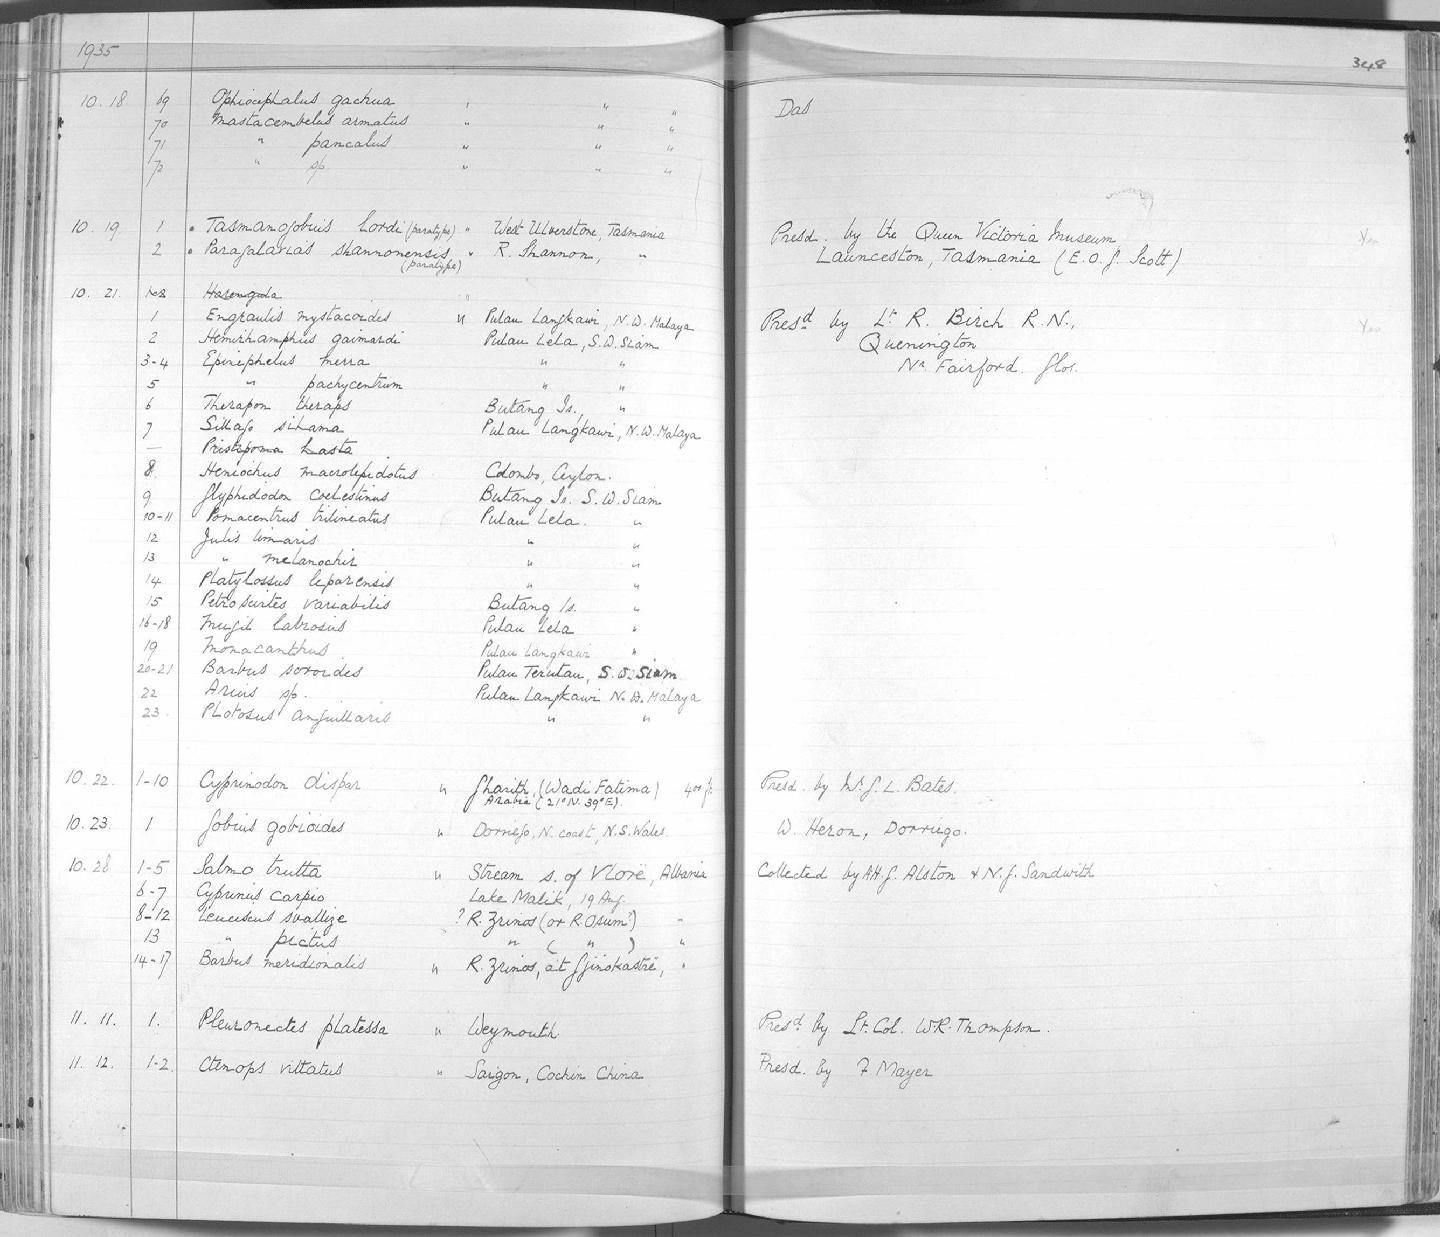 1935
348
10.18 69 Ophiocephalus gachua , " "
Das
70 Mastacembelus armatus " " "
71 " pancalus " " "
72 " sp. " " "
10.19 1 • Tasmangobius lordi (paratype) " West Ulverstone, Tasmania
Presd. by the Queen Victoria Museum
Yes
2 • Paragalaxias shannonensis " R. Shannon, "
(paratype)
Launceston, Tasmania (E.O.G. Scott)
10.21. Harengula "
1 Engraulis mystacoides " Pulau Langkawi, N.W. Malaya
Presd by Lt R. Birch R.N.,
Yes
2 Hemirhamphus gaimardi Pulau Lela, S.W. Siam
Quenington
3-4 Epinephelus merra " "
Nr Fairford. Glos.
5 " pachycentrum " "
6 Therapon theraps Butang Is., "
7 Sillago sihama Pulau Langkawi, N.W. Malaya
— Pristipoma hasta
8. Heniochus macrolepidotus Colombo, Ceylon.
9 Glyphidodon coelestinus Butang Is. S.W. Siam
10-11 Pomacentrus trilineatus Pulau Lela. "
12 Julis lunaris " "
13 " melanochir " "
14 Platylossus leparensis " "
15 Petroscirtes variabilis Butang Is. "
16-18 Mugil labrosus Pulau Lela "
19 Monacanthus Pulau Langkawi "
20-21 Barbus soroides Pulau Terutau, S.W. Siam
22 Arius sp. Pulau Langkawi N.W. Malaya
23. Plotosus anguillaris " "
10.22. 1-10 Cyprinodon dispar " Gharith, (Wadi Fatima) 400 ft
Arabia (21°N. 39°E).
Presd. by Mr G.L. Bates.
10.23. 1 Gobius gobioides " Dorriego, N. coast, N.S. Wales.
W. Heron, Dorriego.
10.28 1-5 Salmo trutta " Stream s. of Vlorë, Albania
Collected by A.H.G. Alston & N.Y. Sandwith
6-7 Cyprinus carpio Lake Malik, 19 Aug.
8-12 Leuciscus svallize ? R. Zrinos (or R. Osum?) "
13 " pictus " ( " ) "
14-17 Barbus meridionalis " R. Zrinos, at Gjinokastrë, "
11.11. 1. Pleuronectes platessa " Weymouth
Presd by Lt. Col. W.R. Thompson.
11.12. 1-2. Ctenops vittatus " Saigon, Cochin China
Presd. by F. Mayer